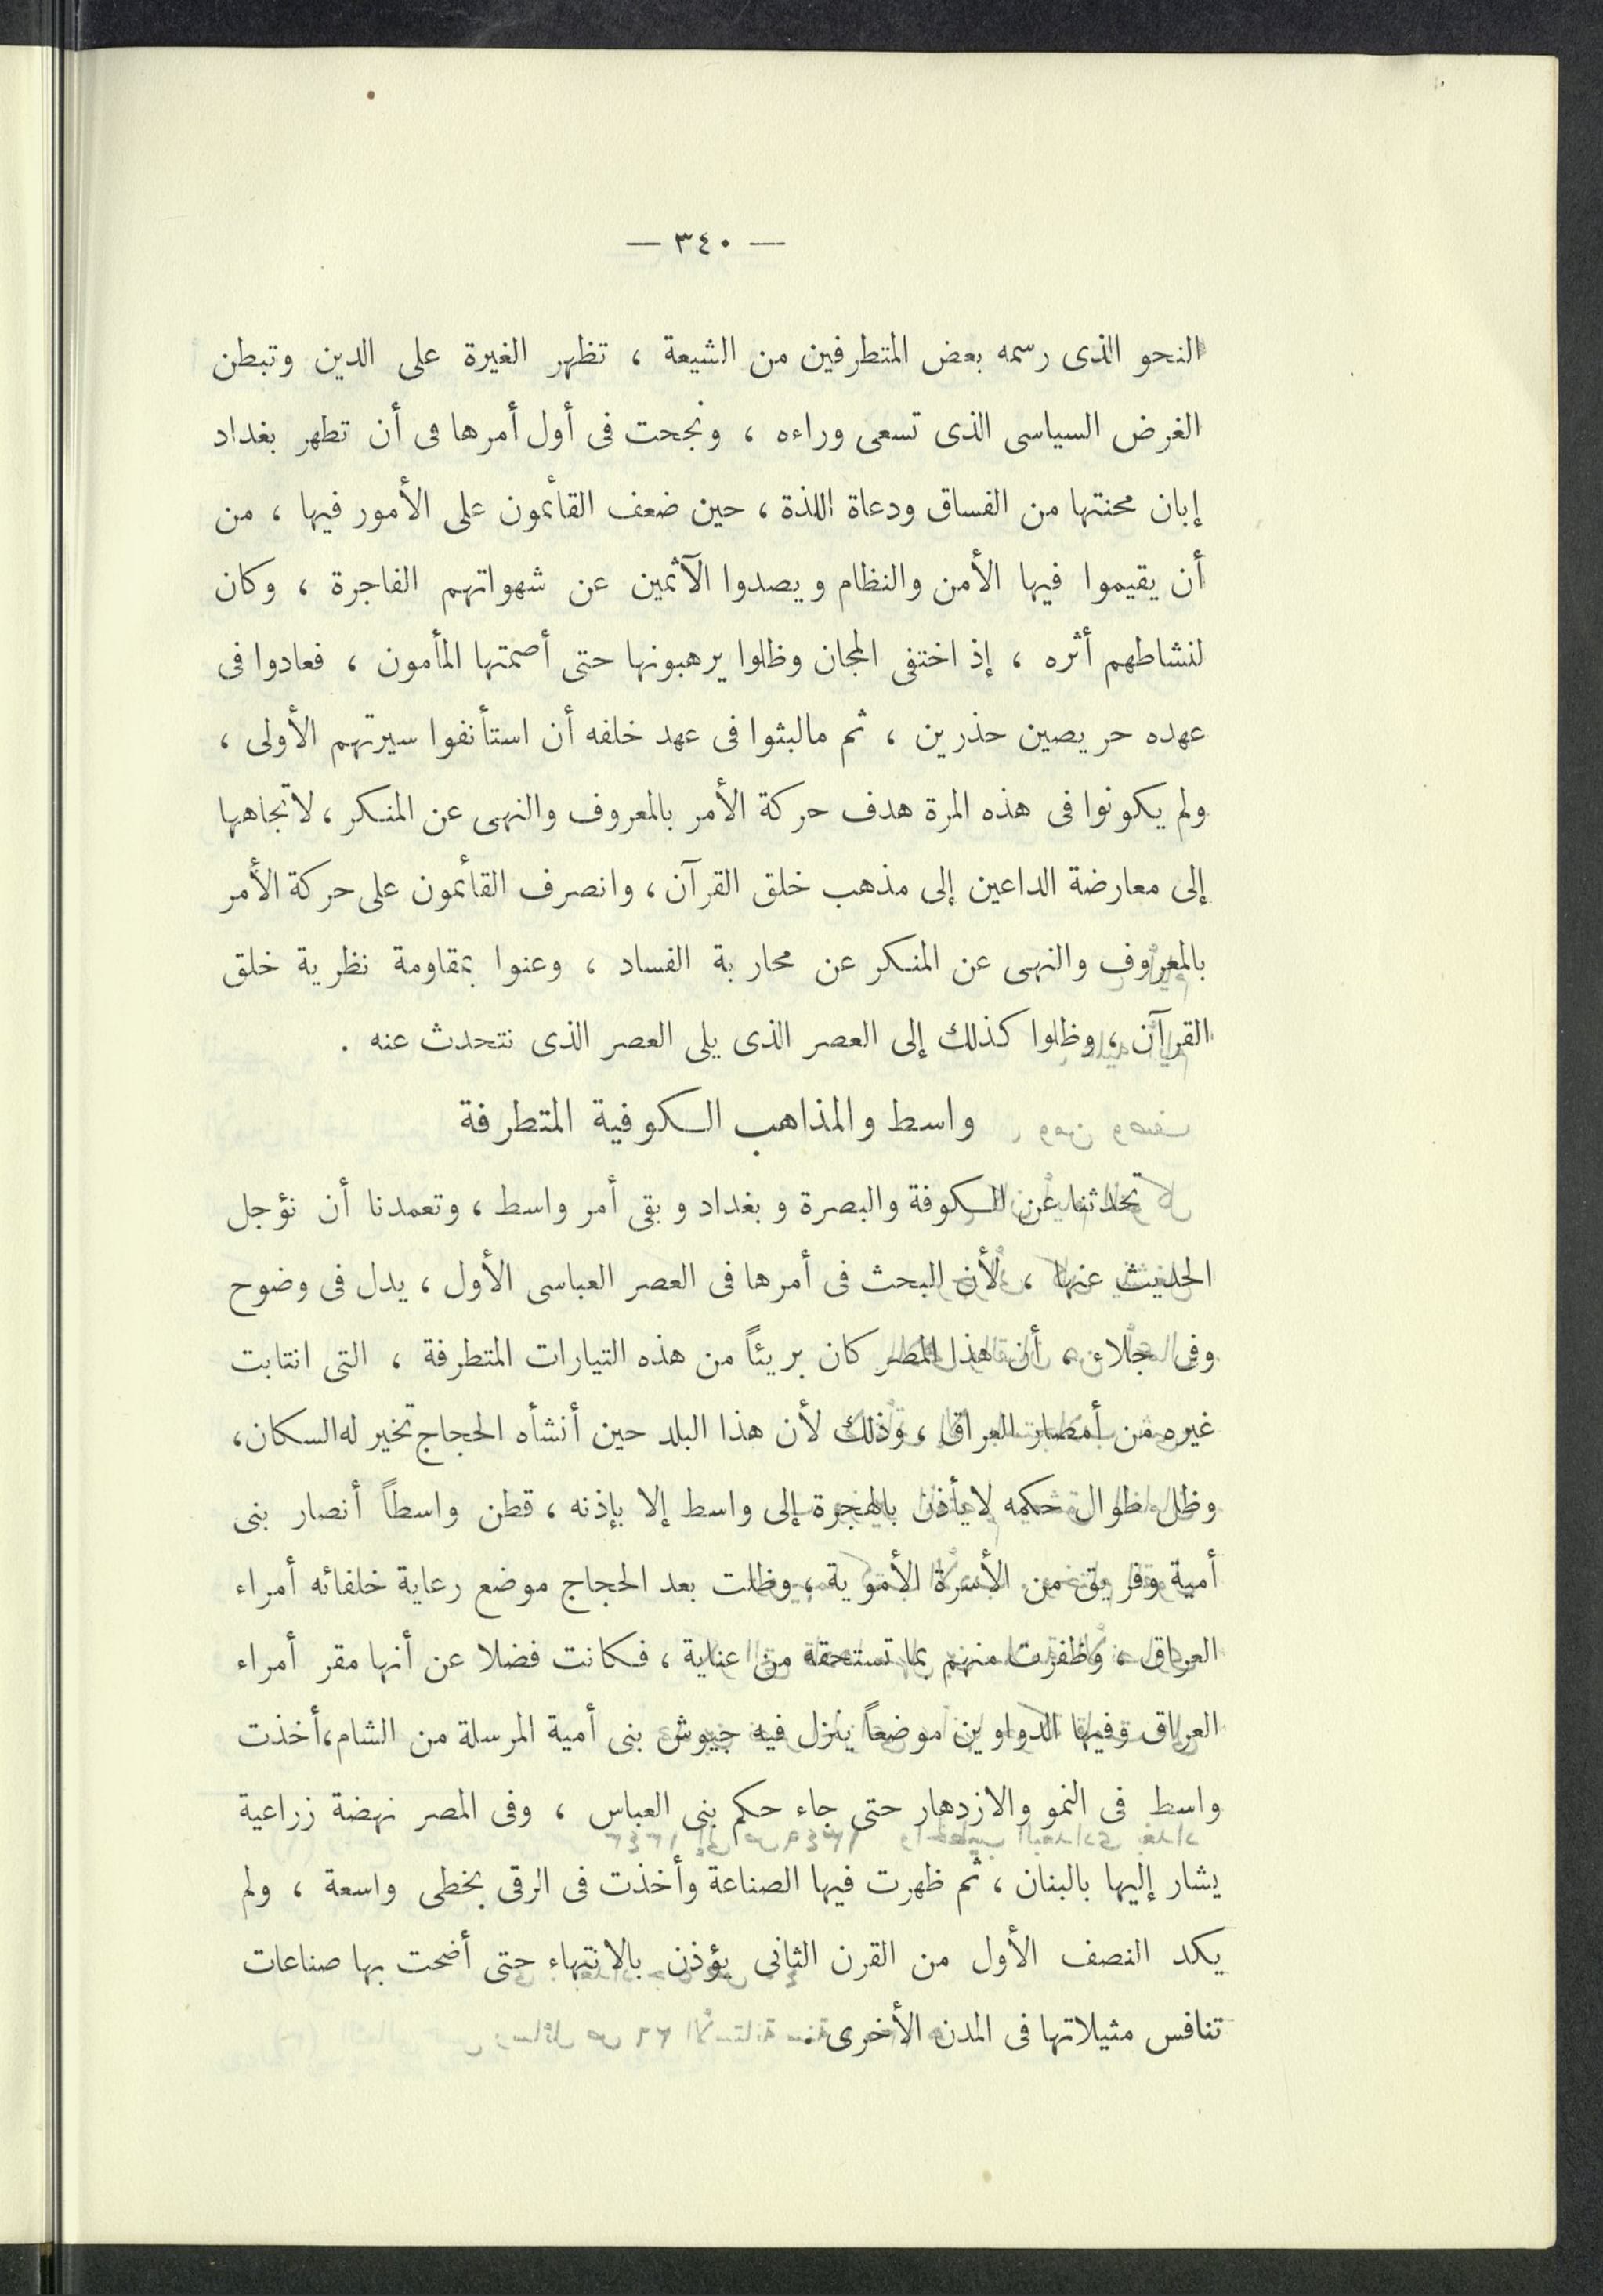 — ٣٤٠ —
النحو الذى رسمه بعض المتطرفين من الشيعة ، تظهر الغيرة على الدين وتبطن
الغرض السياسى الذى تسعى وراءه ، ونجحت فى أول أمرها فى أن تطهر بغداد
إبان محنتها من الفساق ودعاة اللذة ، حين ضعف القائمون على الأمور فيها ، من
أن يقيموا فيها الأمن والنظام ويصدوا الآثمين عن شهواتهم الفاجرة ، وكان
لنشاطهم أثره ، إذ اختفى المجان وظلوا يرهبونها حتى أصمتها المأمون ، فعادوا فى
عهده حريصين حذرين ، ثم مالبثوا فى عهد خلفه أن استأنفوا سيرتهم الأولى ،
ولم يكونوا فى هذه المرة هدف حركة الأمر بالمعروف والنهى عن المنكر ، لاتجاهها
إلى معارضة الداعين إلى مذهب خلق القرآن ، وانصرف القائمون على حركة الأمر
بالمعروف والنهى عن المنكر عن محاربة الفساد ، وعنوا بمقاومة نظرية خلق
القرآن ، وظلوا كذلك إلى العصر الذى يلى العصر الذى نتحدث عنه .
واسط والمذاهب الكوفية المتطرفة
تحدثنا عن الكوفة والبصرة وبغداد وبقى أمر واسط ، وتعمدنا أن نؤجل
الحديث عنها ، لأن البحث فى أمرها فى العصر العباسى الأول ، يدل فى وضوح
وفى جلاء ، أن هذا المصر كان بريئاً من هذه التيارات المتطرفة ، التى انتابت
غيره من أمصار العراق ، وذلك لأن هذا البلد حين أنشأه الحجاج تخير له السكان،
وظل طوال حكمه لايأذن بالهجرة إلى واسط إلا بإذنه ، قطن واسطاً أنصار بنى
أمية وفريق من الأسرة الأموية ، وظلت بعد الحجاج موضع رعاية خلفائه أمراء
العراق ، وظفرت منهم بما تستحقه من عناية ، فكانت فضلا عن أنها مقر أمراء
العراق وفيها الدواوين موضعاً ينزل فيه جيوش بنى أمية المرسلة من الشام، أخذت
واسط فى النمو والازدهار حتى جاء حكم بنى العباس ، وفى المصر نهضة زراعية
يشار إليها بالبنان ، ثم ظهرت فيها الصناعة وأخذت فى الرقى بخطى واسعة ، ولم
يكد النصف الأول من القرن الثانى يؤذن بالانتهاء حتى أضحت بها صناعات
تنافس مثيلاتها فى المدن الأخرى .